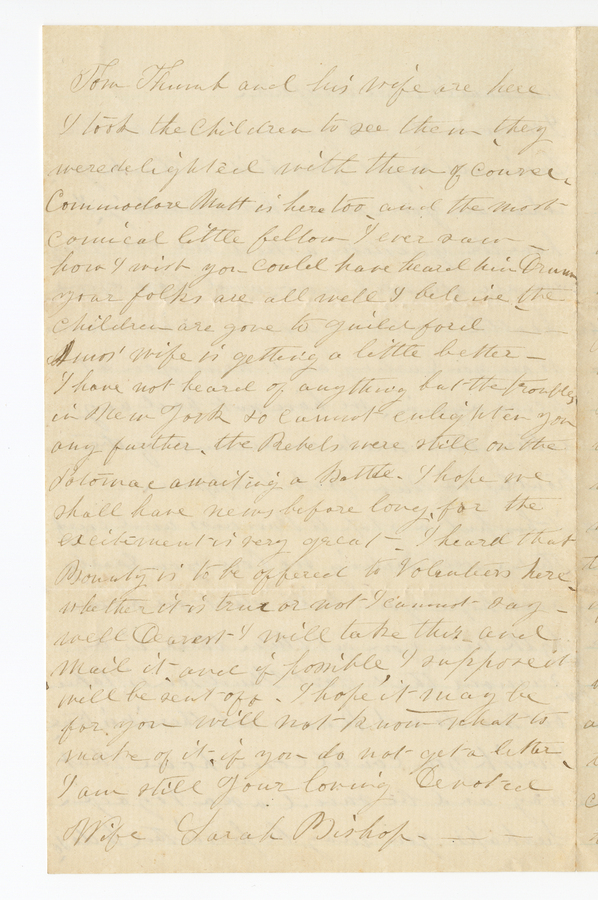 Tom Thumb and his wife are here
I took the Children to see them they
were delighted with them of course.
Commodore Nutt is here too, and the most
comical little fellow I ever saw —
how I wish you could have heard him Drum
your folks are all well I beleive the
Children are gone to Guildford — —
Amos' wife is getting a little better —
I have not heard of anything but the troubles
in New York so cannot enlighten you
any further. the Rebels were still on the
Potomac awaiting a Battle. I hope we
shall have news before long, for the
excitement is very great — I heard that
Bounty is to be offered to Volenters here,
whether it is true or not I cannot say —
well Dearest I will take this and
Mail it and if possible I suppose it
will be sent off. I hope it may be
for you will not know what to
make of it if you do not get a letter.
I am still Your loving Devoted
Wife Sarah Bishop. — —